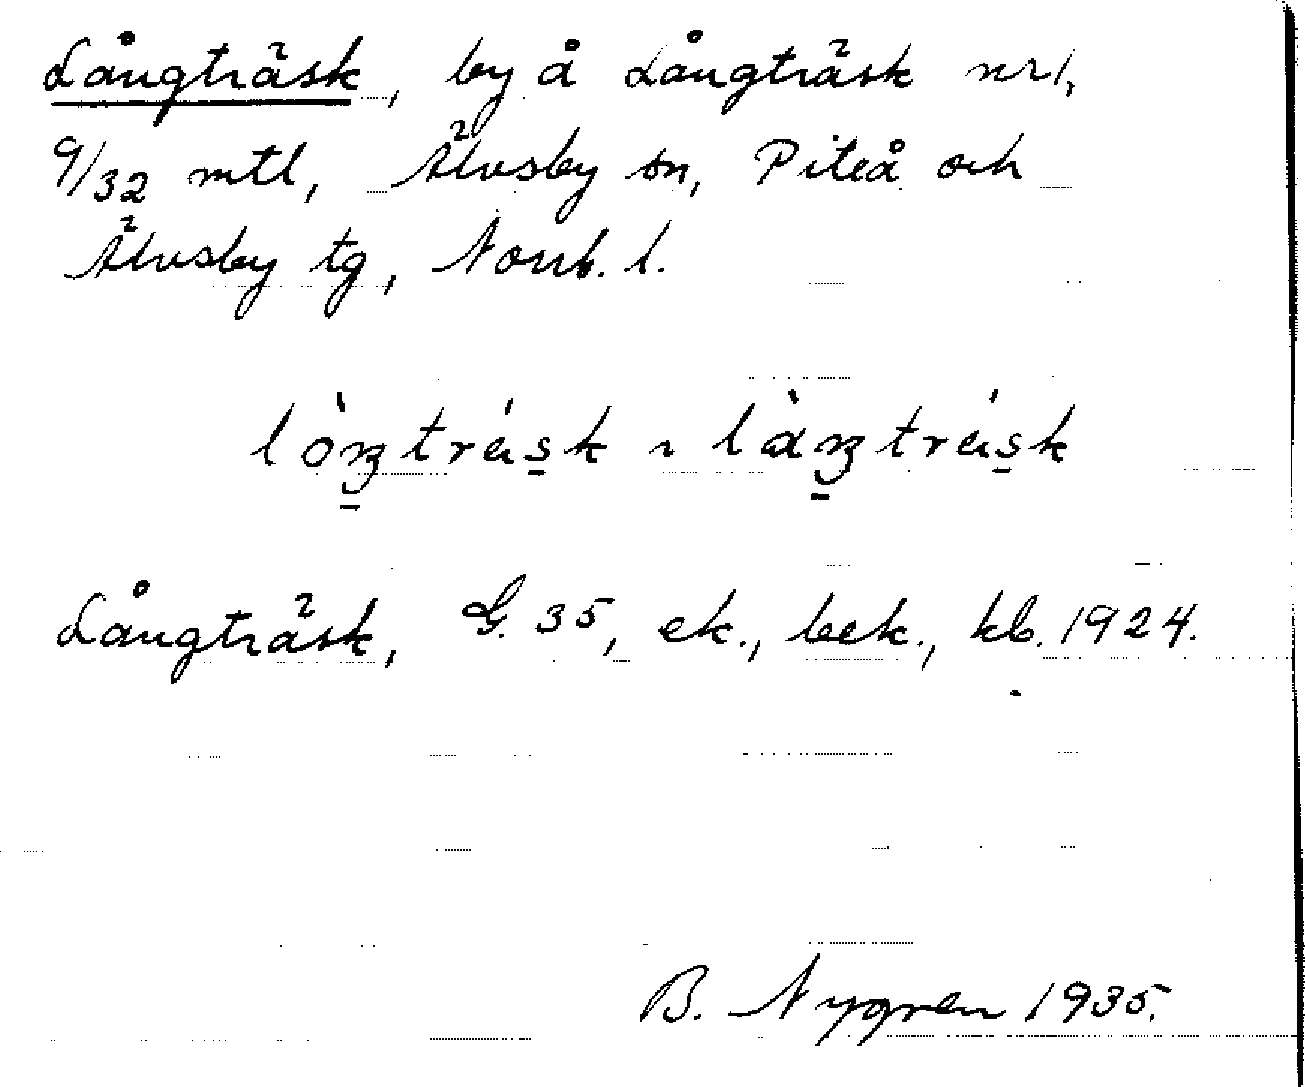 Långträsk, by å Långträsk nr 1,
9/32 mtl, Älvsby sn, Piteå och
Älvsby tg, Norrb. l.
Långträsk, G. 35, ek., bek., kb. 1924.
B. Nygren 1935.